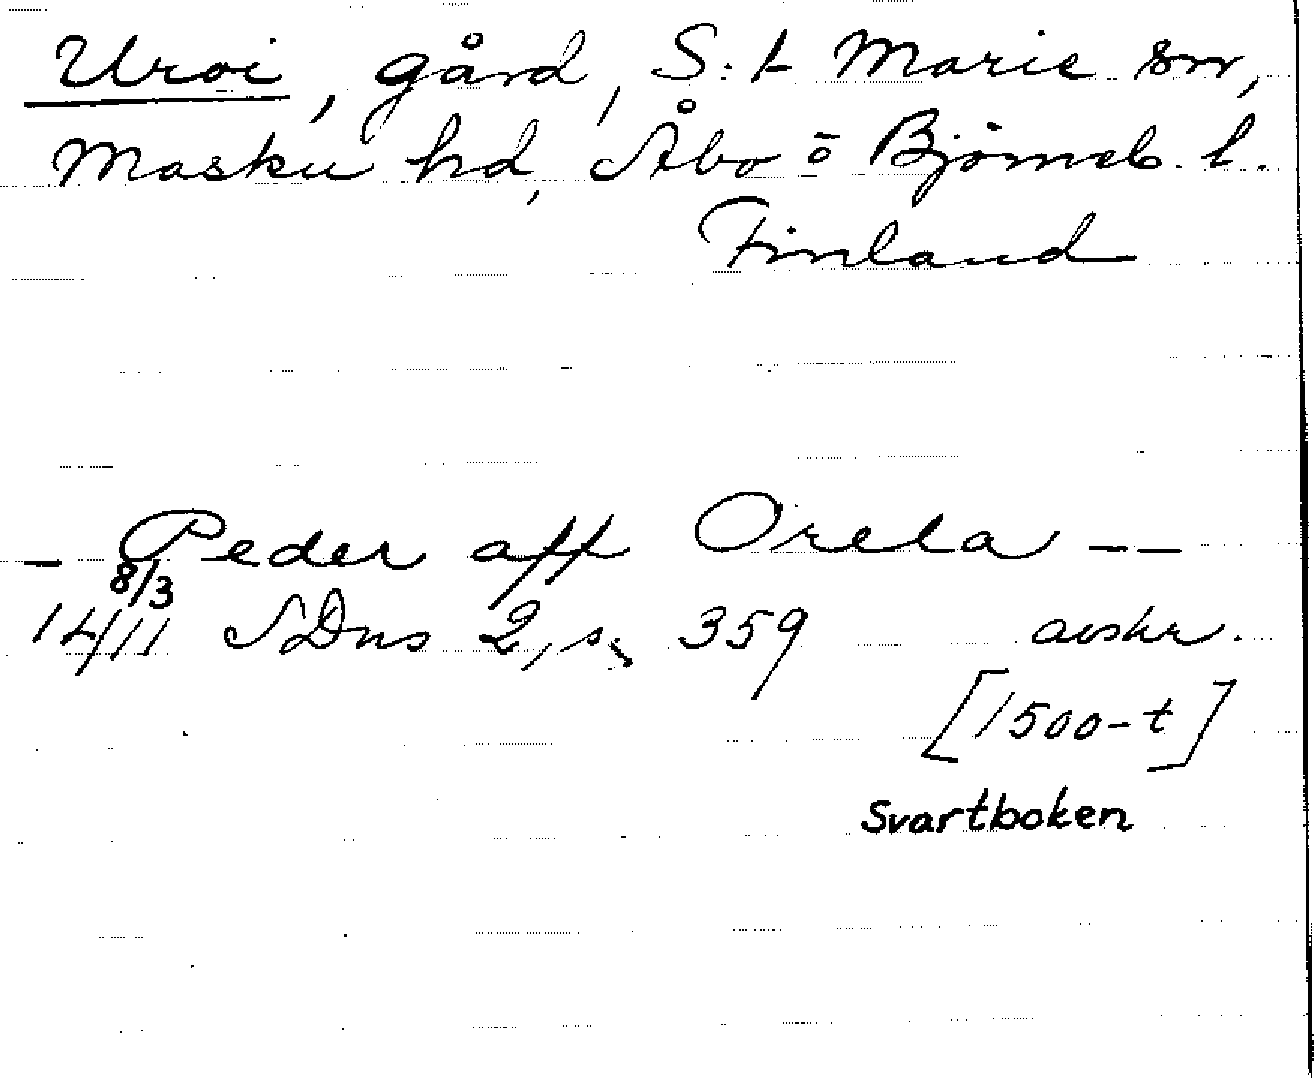 Uroi, gård, S:t Marie sn,
Masku hd, Åbo o Björneb. l.
Finland
— Peder aff Orela — —
8/3
14/11 SDns 2, s. 359 avskr.
[1500-t]
Svartboken